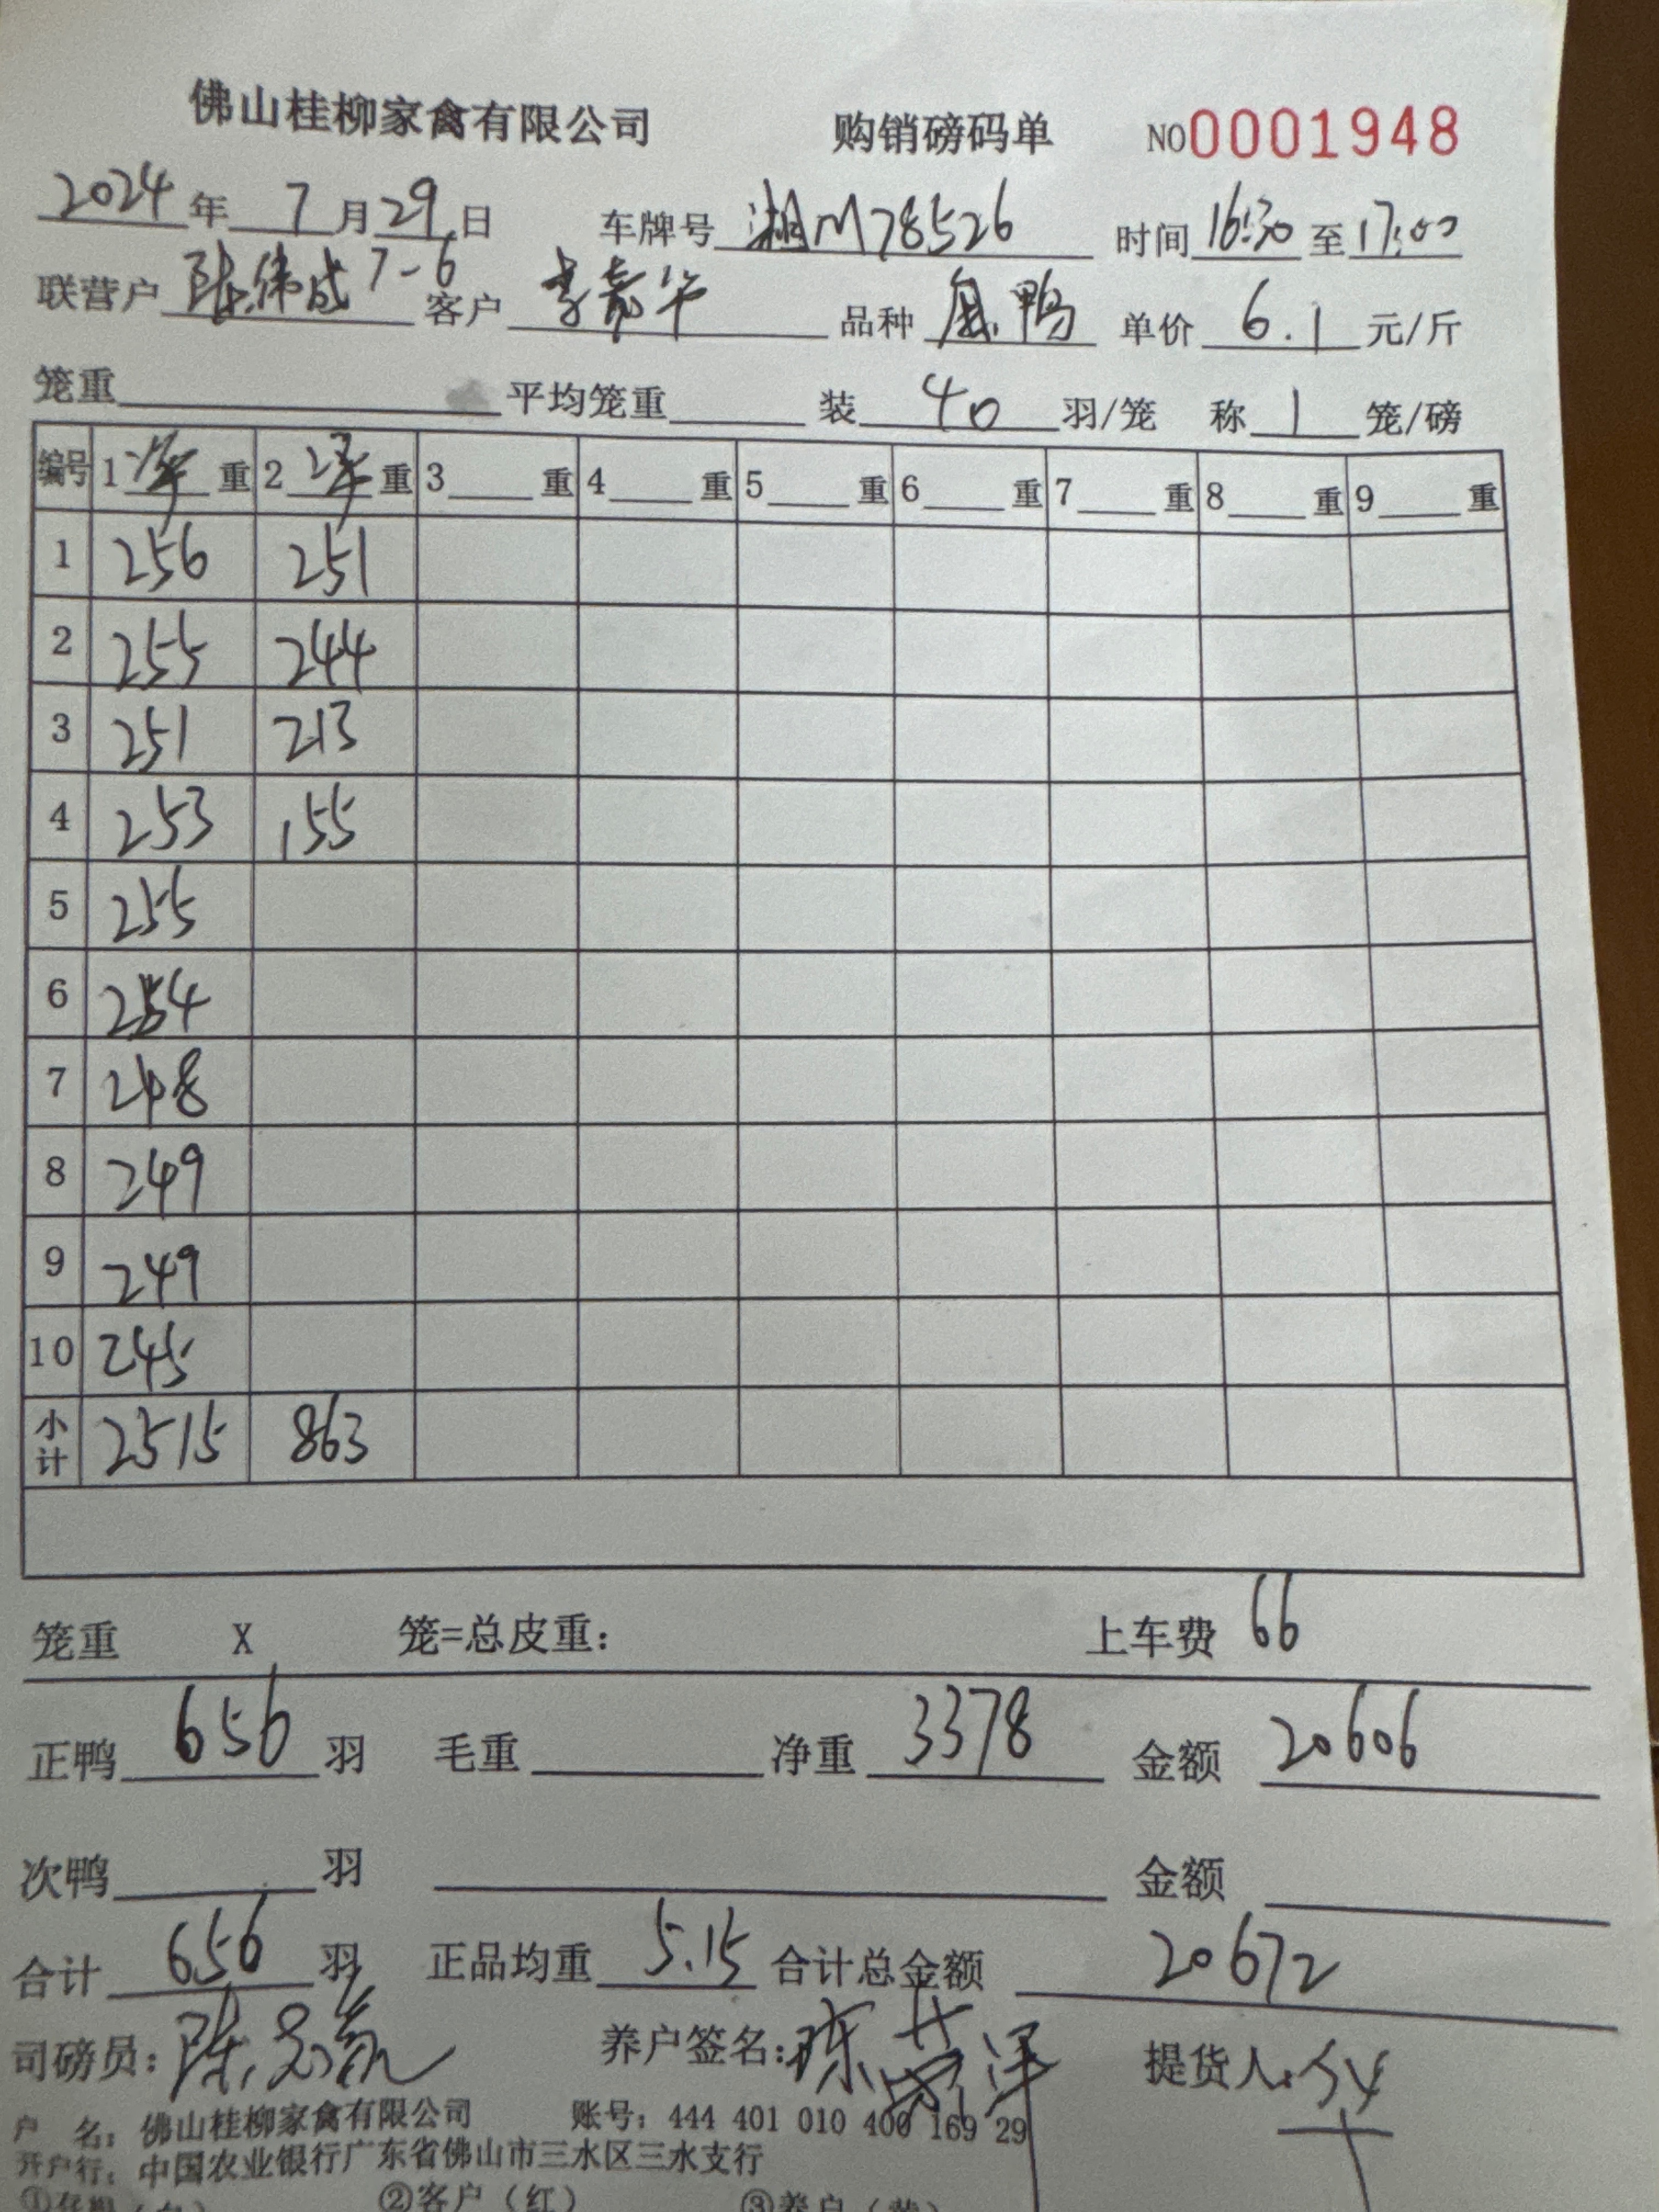 佛山桂柳家禽有限公司 购销磅码单 NO0001948
2024年 7月29日 车牌号 湘M78526 时间 16:30 至 17:00
联营户 陈伟成 7-6 客户 李嘉华 品种 鸭 单价 6.1 元/斤
笼重 平均笼重 装 40 羽/笼 称 1 笼/磅
编号 1 净 重 2 净 重 3 重 4 重 5 重 6 重 7 重 8 重 9 重
1 256 251
2 255 244
3 251 213
4 253 155
5 255
6 254
7 248
8 249
9 249
10 245
小计 2515 863
笼重 X 笼=总皮重: 上车费 66
正鸭 656 羽 毛重 净重 3378 金额 20606
次鸭 羽 金额
合计 656 羽 正品均重 5.15 合计总金额 20672
司磅员: 陈 养户签名: 陈 提货人:
户 名: 佛山桂柳家禽有限公司 账号: 444 401 010 400 169 29
开户行: 中国农业银行广东省佛山市三水区三水支行
②客户(红)